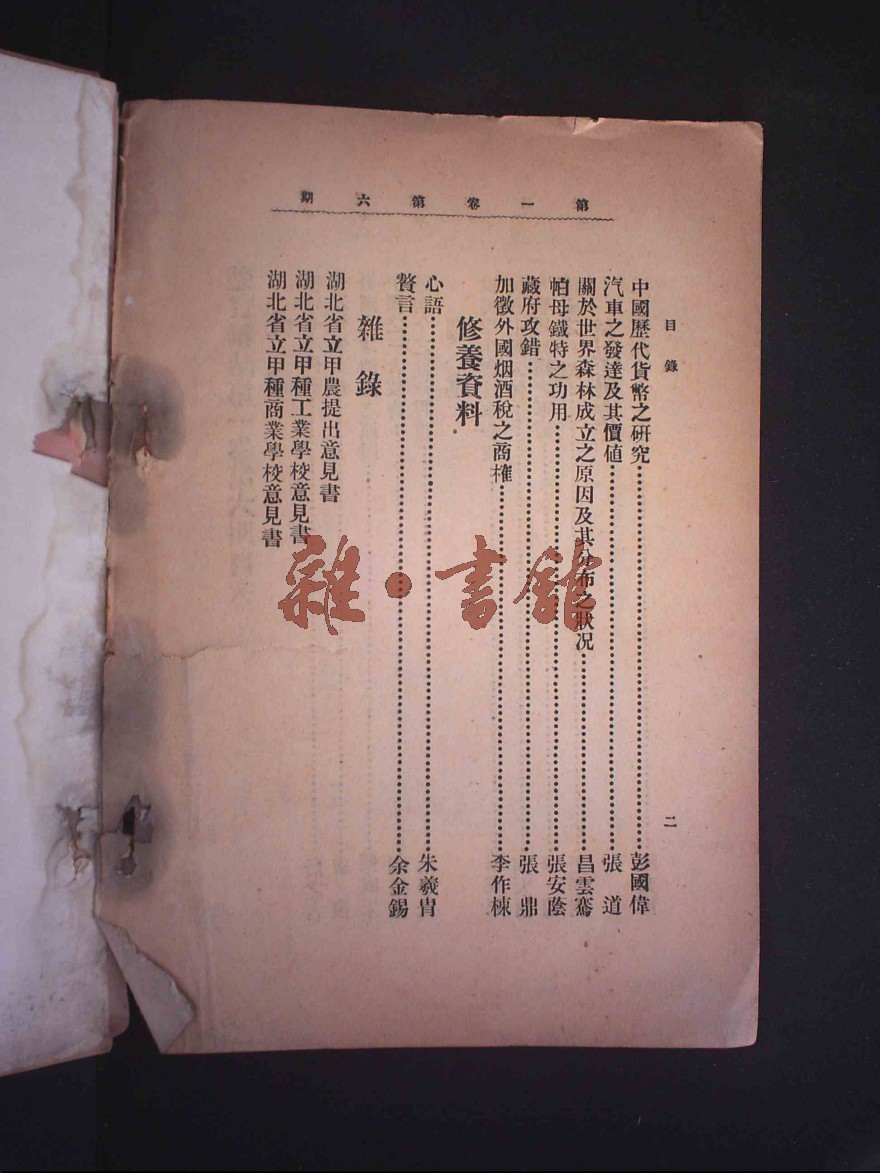 第一卷第六期
目錄
二
中國歷代貨幣之研究……彭國偉
汽車之發達及其價值……張道
關於世界森林成立之原因及其分布之狀况……昌雲騫
帕母鐵特之功用……張安蔭
藏府攻錯……張鼎
加徵外國烟酒稅之商榷……李作棟
修養資料
心語……朱羲胄
贅言……余金錫
雜錄
湖北省立甲農提出意見書
湖北省立甲種工業學校意見書
湖北省立甲種商業學校意見書
雜·書館